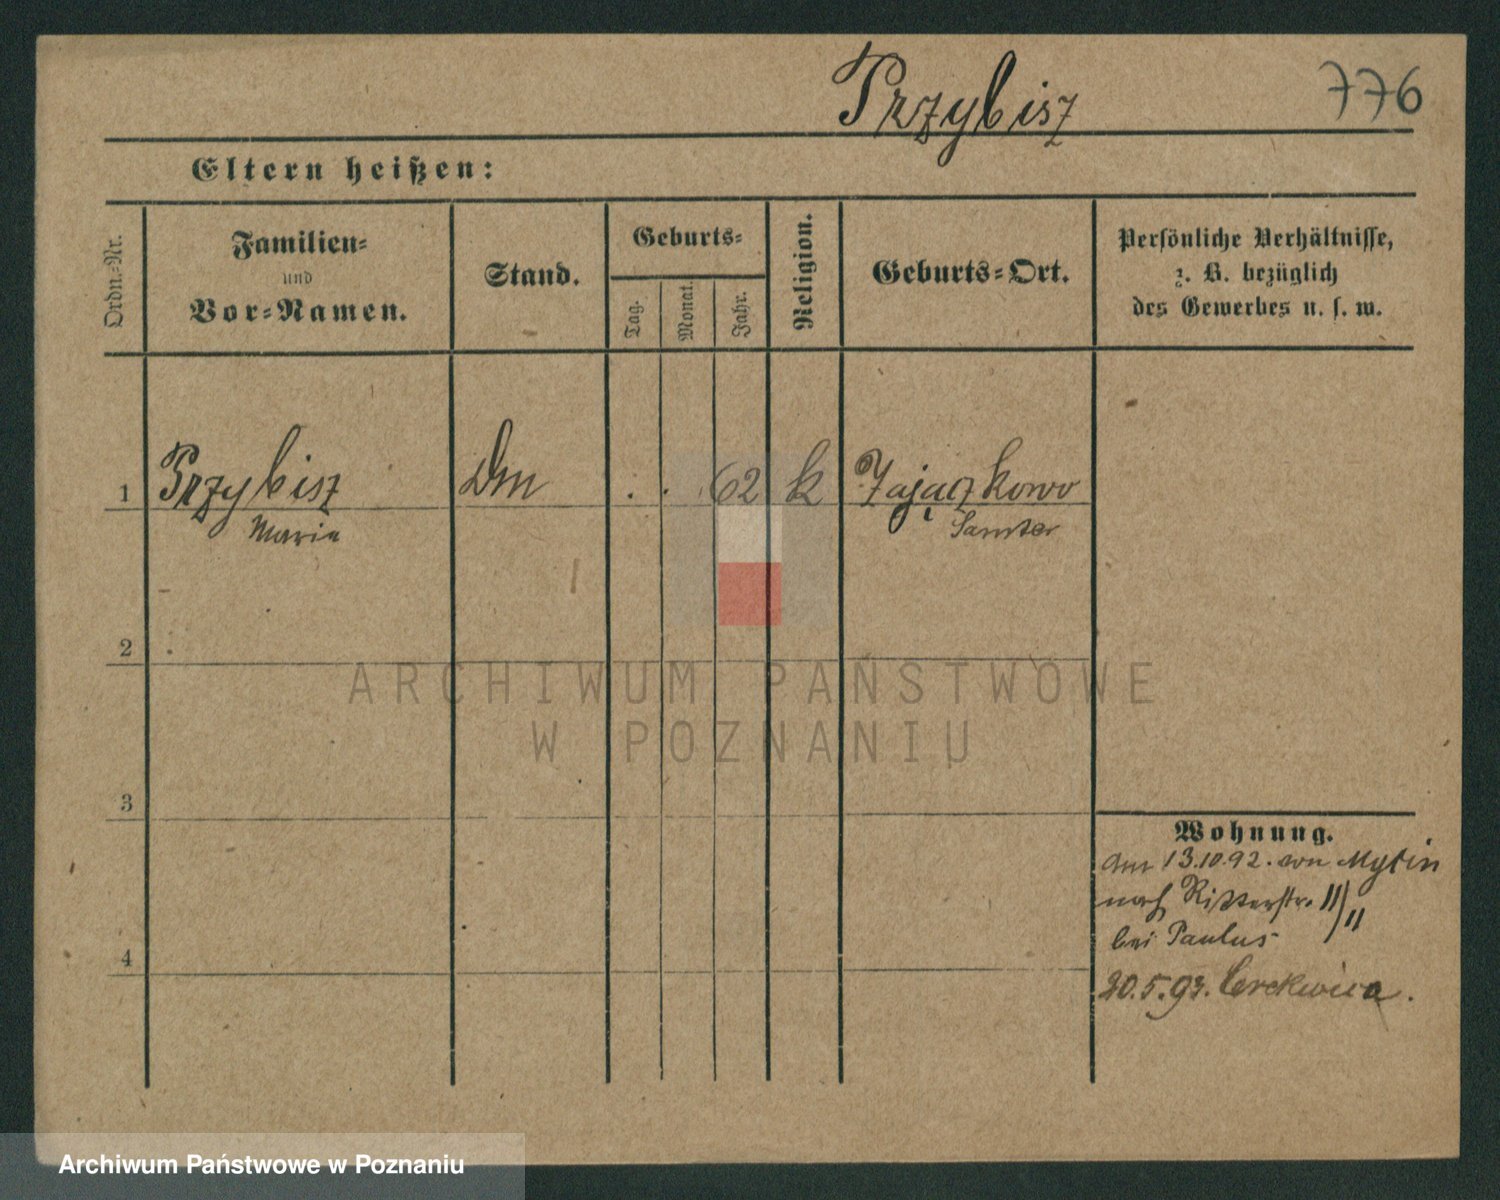 Przybisz
776
Eltern heißen:
Ordn.-Nr.
Familien-
und
Vor-Namen.
Stand.
Geburts-
Tag.
Monat.
Jahr.
Religion.
Geburts-Ort.
Persönliche Verhältnisse,
z. B. bezüglich
des Gewerbes u. s. w.
1 Przybisz Dm . . 62 k Zajączkowo
Maria Samter
2
3
4
Wohnung.
am 13.10.92. von
nach Ritterstr. 11/11
bei Paulus
20.5.93. Cerekwica.
ARCHIWUM PAŃSTWOWE
W POZNANIU
Archiwum Państwowe w Poznaniu